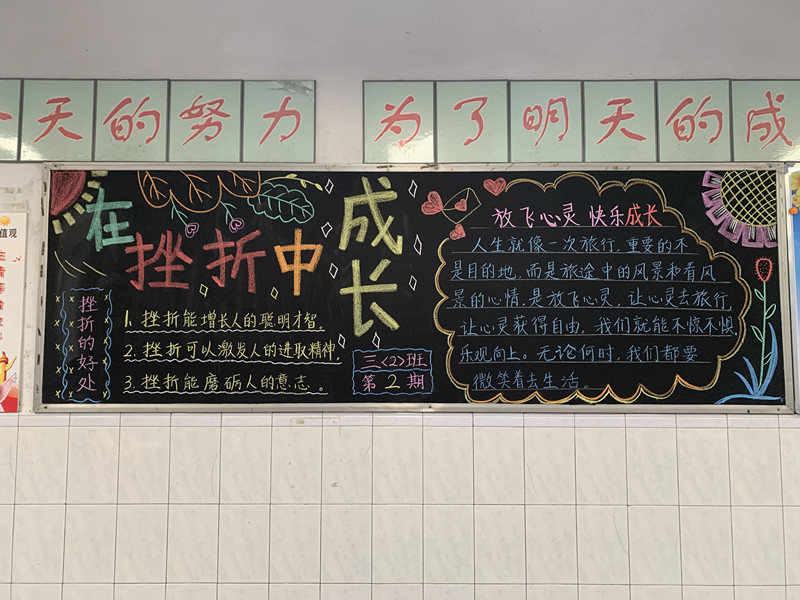 天的努力
为了明天的成
在挫折中
成长
挫折的好处
1.挫折能增长人的聪明才智.
2.挫折可以激发人的进取精神.
3.挫折能磨砺人的意志。
三<2>班
第2期
放飞心灵 快乐成长
人生就像一次旅行,重要的不
是目的地,而是旅途中的风景和看风
景的心情.是放飞心灵,让心灵去旅行,
让心灵获得自由,我们就能不惊不惧.
乐观向上。无论何时,我们都要
微笑着去生活。
值观